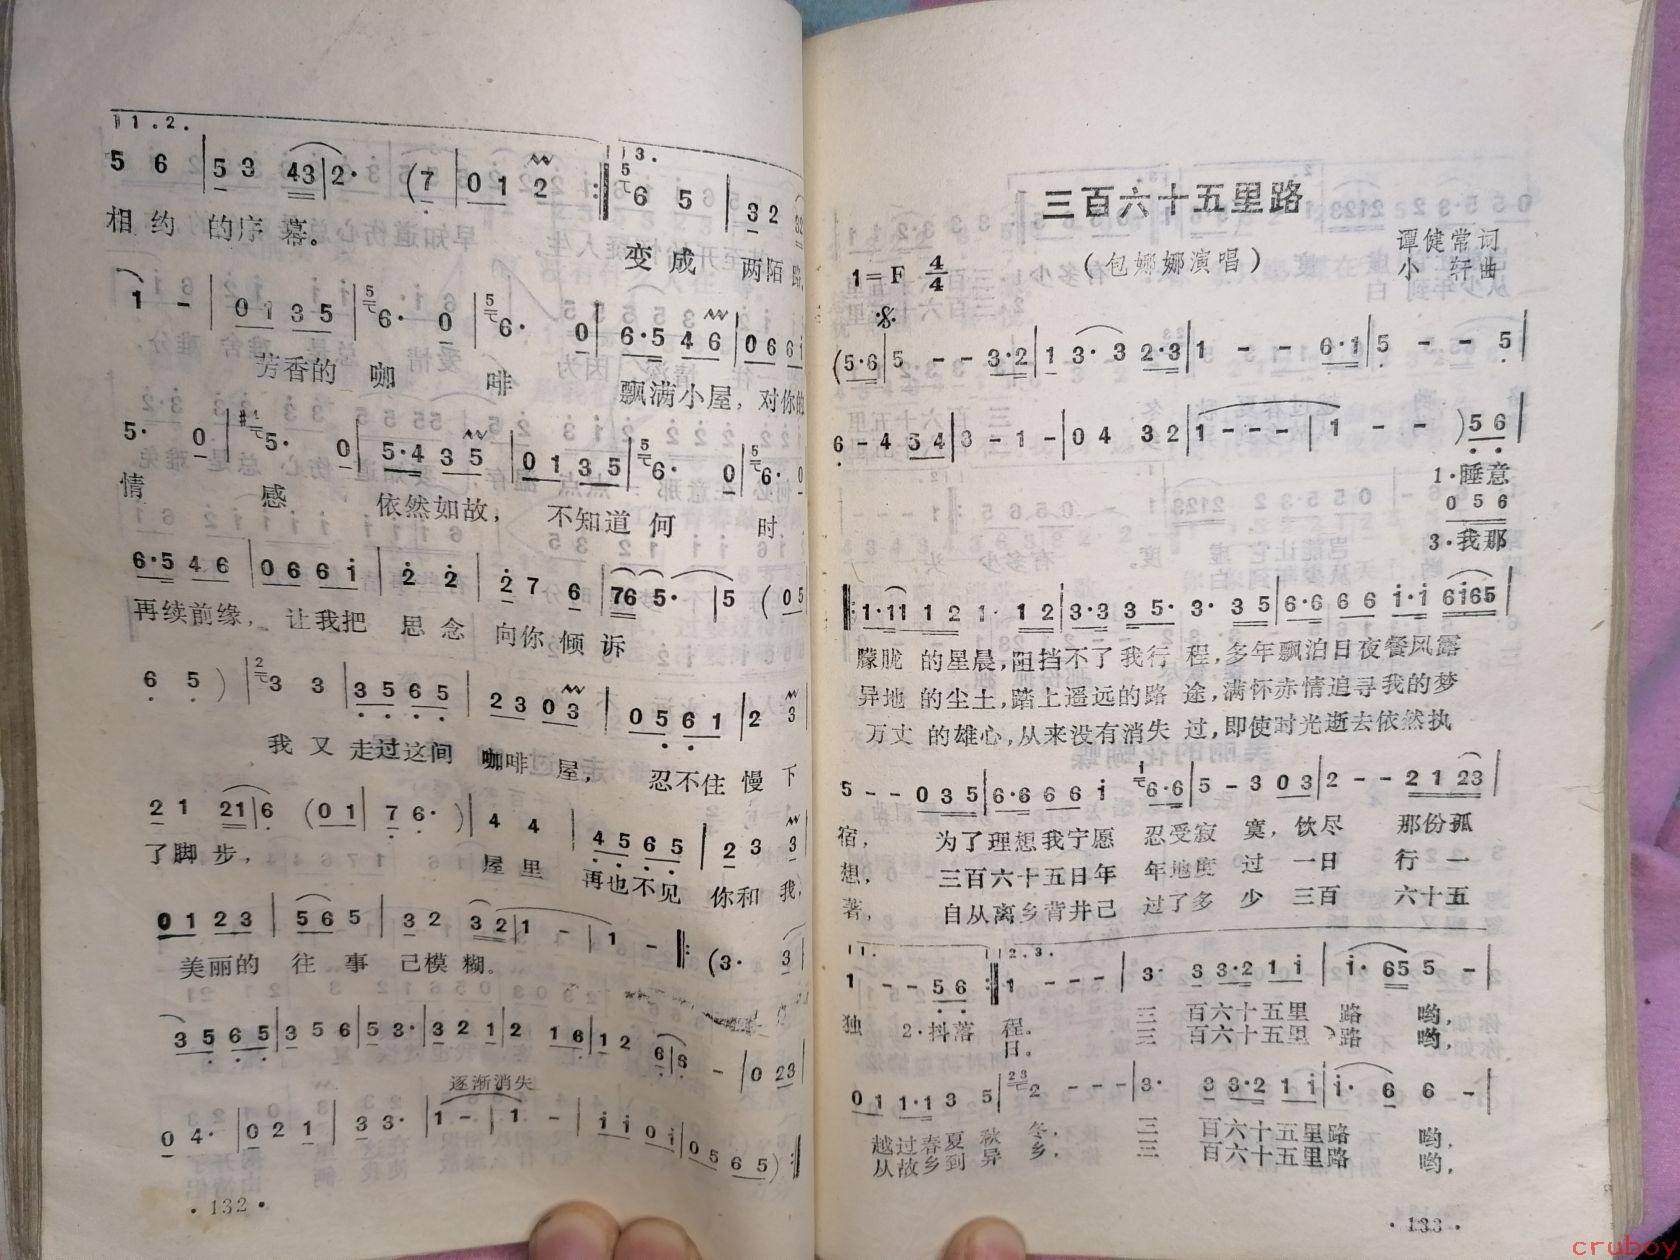 1.2.
3.
5 6 | 5 3 43 | 2· (7 | 0 1 2 :‖ 6 5 | 3 2 32
相约 的序幕。 变成 两陌路,
1 - | 0 1 3 5 | 6· 0 | 6· 0 | 6·5 4 6 | 0 6 6 i
芳香的 咖 啡 飘满小屋, 对你的
5· 0 | 5· 0 | 5·4 3 5 | 0 1 3 5 | 6· 0 | 6·
情 感 依然如故, 不知道 何 时
6·5 4 6 | 0 6 6 i | 2 2 | 2 7 6 | 76 5· | 5 (0 5
再续前缘, 让我把 思念 向你倾诉
6 5 ) | 3 3 | 3 5 6 5 | 2 3 0 3 | 0 5 6 1 | 2 3
我又走过这间 咖啡屋, 忍不住慢下
2 1 21 | 6 (0 1 | 7 6· ) | 4 4 | 4 5 6 5 | 2 3 3
了脚步, 屋里 再也不见 你和我,
0 1 2 3 | 5 6 5 | 3 2 3 2 | 1 - | 1 - ‖: (3· 3
美丽的 往事 己模糊。
3 5 6 5 | 3 5 6 | 5 3· | 3 2 1 | 2 1 6 | 1 2 6 | 6 - | 0 2 3
逐渐消失
0 4· | 0 2 1 | 3 3· | 1 - | 1 - | i i 0 i | 0 5 6 5 ) :‖
·132·
三百六十五里路
(包娜娜演唱)
谭健常词
小 轩曲
1=F 4/4
(5·6 | 5 - - 3·2 | 1 3· 3 2·3 | 1 - - 6·1 | 5 - - 5 |
6 - 4 5 4 | 3 - 1 - | 0 4 3 2 | 1 - - - | 1 - - ) 5 6 |
1·睡意
0 5 6
3·我那
‖: 1·11 1 2 1· 1 2 | 3·3 3 5· 3· 3 5 | 6·6 6 6 i·i 6i65 |
朦胧 的星晨,阻挡不了我行 程,多年飘泊日夜餐风露
异地 的尘土,踏上遥远的路 途,满怀赤情追寻我的梦
万丈 的雄心,从来没有消失 过,即使时光逝去依然执
5 - - 0 3 5 | 6·6 6 6 i 6·6 | 5 - 3 0 3 | 2 - - 2 1 23 |
宿, 为了理想我宁愿 忍受寂 寞,饮尽 那份孤
想, 三百六十五日年 年地度 过 一日 行 一
著, 自从离乡背井己 过了多 少 三百 六十五
1.
2.3.
1 - - 5 6 :‖ 1 - - - | 3· 3 3·2 1 i | i· 65 5 - |
独 2·抖落 程。 三 百六十五里 路 哟,
日。 三 百六十五里 路 哟,
0 1 1·1 3 5 | 2 - - - | 3· 3 3·2 1 i | i· 6 6 - |
越过春夏秋 冬, 三 百六十五里路 哟,
从故乡到异 乡, 三 百六十五里路 哟,
·133·
cruboy